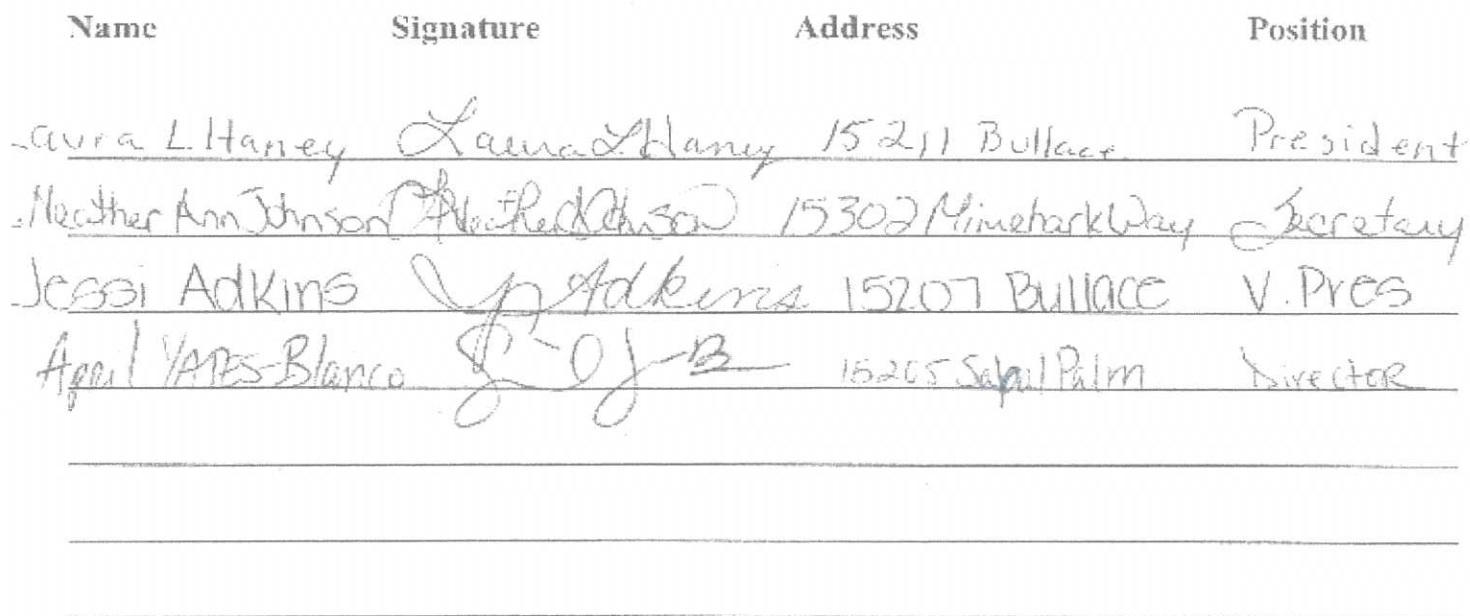 Name Signature Address Position
Laura L. Haney Laura L Haney 15211 Bullace President
Heather Ann Johnson Heather Johnson 15302 Way Secretary
Jessi Adkins Adkins 15207 Bullace V. Pres
April YAPES-Blanco 15205 Sabal Palm Director